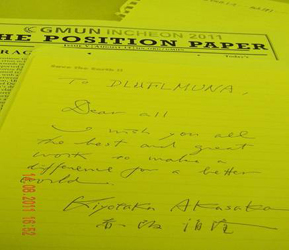 GMUN INCHEON 2011
HE POSITION PAPER
TO DLUFLMUNA,
Dear all
I wish you all
the best and great
work to make a
difference for a better
world.
Kiyotaka Akasaka
赤阪 清隆
14/08/2011 16:52